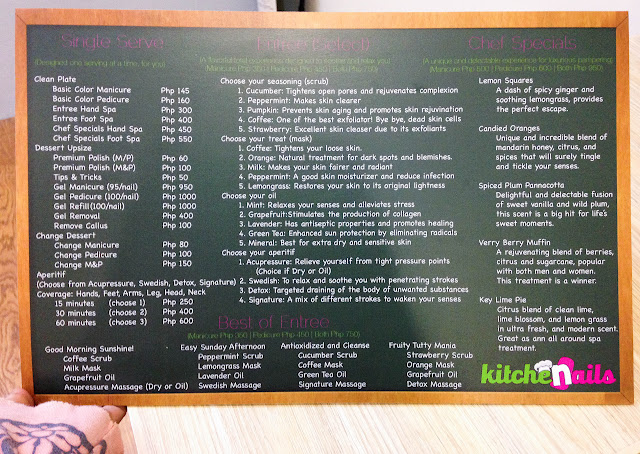 Single Serve
(Designed one serving at a time, for you)
Clean Plate
Basic Color Manicure Php 145
Basic Color Pedicure Php 160
Entree Hand Spa Php 300
Entree Foot Spa Php 400
Chef Specials Hand Spa Php 450
Chef Specials Foot Spa Php 550
Dessert Upsize
Premium Polish (M/P) Php 60
Premium Polish (M&P) Php 100
Tips & Tricks Php 50
Gel Manicure (95/nail) Php 950
Gel Pedicure (100/nail) Php 1000
Gel Refill (100/nail) Php 1000
Gel Removal Php 400
Remove Callus Php 100
Change Dessert
Change Manicure Php 80
Change Pedicure Php 100
Change M&P Php 150
Aperitif
(Choose from Acupressure, Swedish, Detox, Signature)
Coverage: Hands, Feet, Arms, Leg, Head, Neck
15 minutes (choose 1) Php 250
30 minutes (choose 2) Php 400
60 minutes (choose 3) Php 600
Entree (Select)
(Manicure Php 350 | Pedicure Php 450 | Both Php 750)
Choose your seasoning (scrub)
1. Cucumber: Tightens open pores and rejuvenates complexion
2. Peppermint: Makes skin clearer
3. Pumpkin: Prevents skin aging and promotes skin rejuvination
4. Coffee: One of the best exfoliator! Bye bye, dead skin cells
5. Strawberry: Excellent skin cleaser due to its exfoliants
Choose your treat (mask)
1. Coffee: Tightens your loose skin.
2. Orange: Natural treatment for dark spots and blemishes.
3. Milk: Makes your skin fairer and radiant
4. Peppermint: A good skin moisturizer and reduce infection
5. Lemongrass: Restores your skin to its original lightness
Choose your oil
1. Mint: Relaxes your senses and alleviates stress
2. Grapefruit: Stimulates the production of collagen
3. Lavender: Has antiseptic properties and promotes healing
4. Green Tea: Enhanced sun protection by eliminating radicals
5. Mineral: Best for extra dry and sensitive skin
Choose your aperitif
1. Acupressure: Relieve yourself from tight pressure points
(Choice if Dry or Oil)
2. Swedish: To relax and soothe you with penetrating strokes
3. Detox: Targeted draining of the body of unwanted substances
4. Signature: A mix of different strokes to waken your senses
Chef Specials
(A unique and delectable experience for luxurious pampering)
(Manicure Php 500 | Pedicure Php 600 | Both Php 950)
Lemon Squares
A dash of spicy ginger and
soothing lemongrass, provides
the perfect escape.
Candied Oranges
Unique and incredible blend of
mandarin honey, citrus, and
spices that will surely tingle
and tickle your senses.
Spiced Plum Pannacotta
Delightful and delectable fusion
of sweet vanilla and wild plum,
this scent is a big hit for life's
sweet moments.
Verry Berry Muffin
A rejuvenating blend of berries,
citrus and sugarcane, popular
with both men and women.
This treatment is a winner.
Key Lime Pie
Citrus blend of clean lime,
lime blossom, and lemon grass
in ultra fresh, and modern scent.
Great as ann all around spa
treatment.
Best of Entree
(Manicure Php 350 | Pedicure Php 450 | Both Php 750)
Good Morning Sunshine!
Coffee Scrub
Milk Mask
Grapefruit Oil
Acupressure Massage (Dry or Oil)
Easy Sunday Afternoon
Peppermint Scrub
Lemongrass Mask
Lavender Oil
Swedish Massage
Antioxidized and Cleanse
Cucumber Scrub
Coffee Mask
Green Tea Oil
Signature Massage
Fruity Tutty Mania
Strawberry Scrub
Orange Mask
Grapefruit Oil
Detox Massage
kitchenails